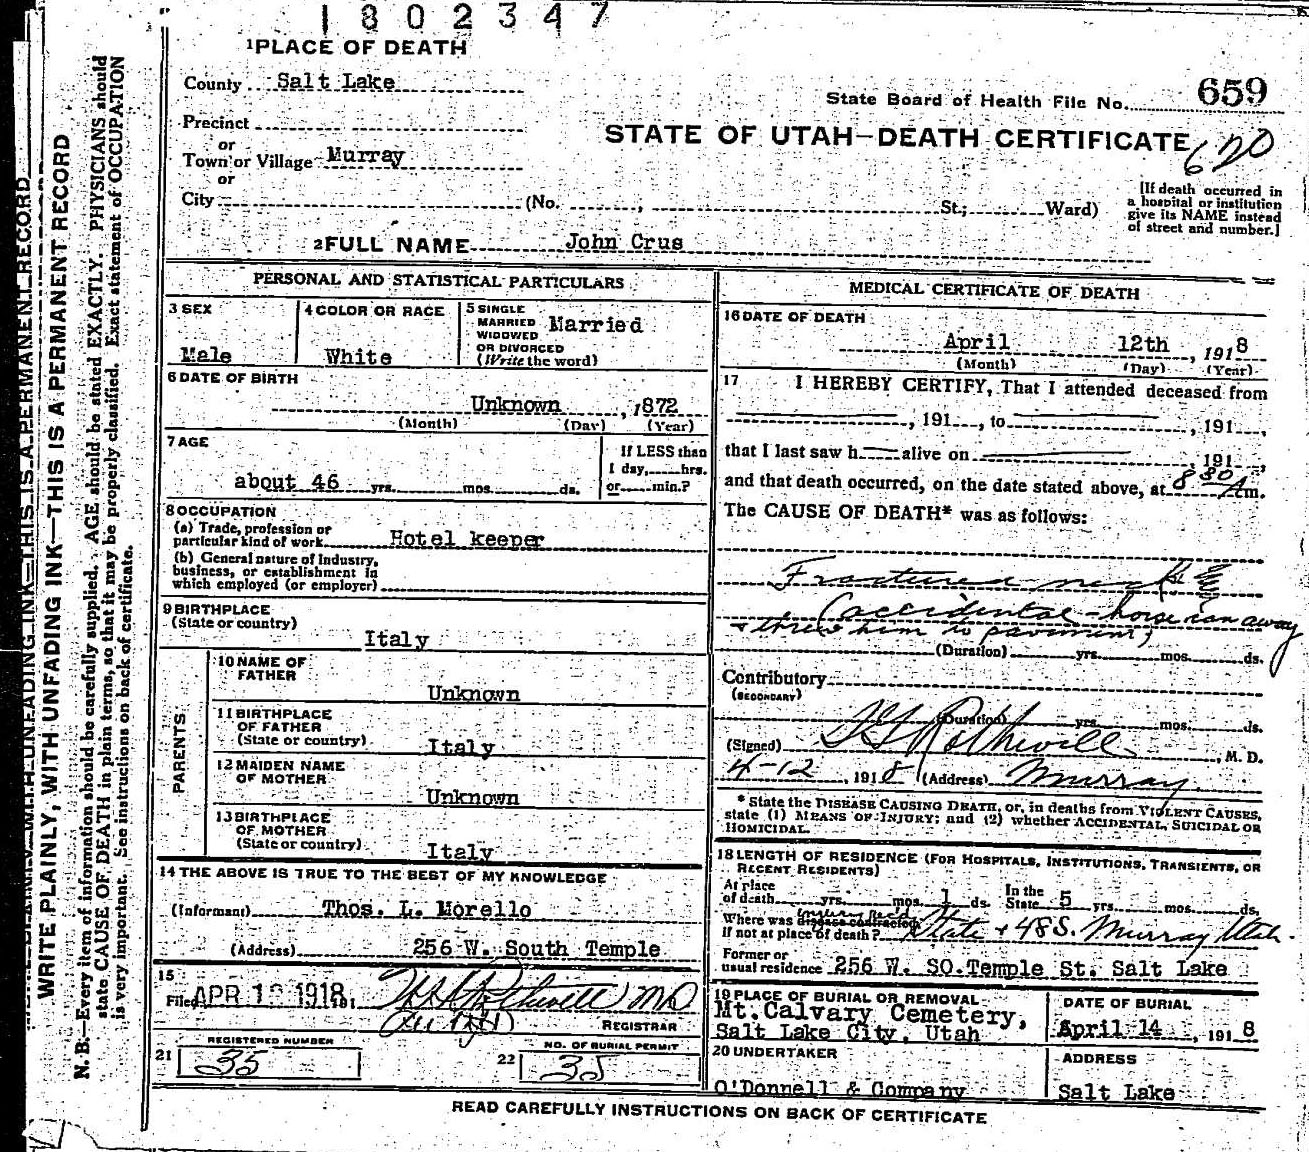 1802347
1 PLACE OF DEATH
County Salt Lake
State Board of Health File No. 659
Precinct
STATE OF UTAH—DEATH CERTIFICATE
620
or
Town or Village Murray
or
City (No. , St.; Ward)
[If death occurred in
a hospital or institution
give its NAME instead
of street and number.]
2 FULL NAME John Crus
PERSONAL AND STATISTICAL PARTICULARS
3 SEX
Male
4 COLOR OR RACE
White
5 SINGLE
MARRIED
WIDOWED
OR DIVORCED
(Write the word)
Married
6 DATE OF BIRTH
Unknown , 1872
(Month) (Day) (Year)
7 AGE
about 46 yrs. mos. ds.
If LESS than
1 day, hrs.
or min.?
8 OCCUPATION
(a) Trade, profession or
particular kind of work Hotel keeper
(b) General nature of Industry,
business, or establishment in
which employed (or employer)
9 BIRTHPLACE
(State or country)
Italy
PARENTS
10 NAME OF
FATHER
Unknown
11 BIRTHPLACE
OF FATHER
(State or country) Italy
12 MAIDEN NAME
OF MOTHER
Unknown
13 BIRTHPLACE
OF MOTHER
(State or country)
Italy
14 THE ABOVE IS TRUE TO THE BEST OF MY KNOWLEDGE
(Informant) Thos. L. Morello
(Address) 256 W. South Temple
15
Filed APR 1 1918 191 Rothwell MD
REGISTRAR
REGISTERED NUMBER
21 35
NO. OF BURIAL PERMIT
22 35
MEDICAL CERTIFICATE OF DEATH
16 DATE OF DEATH
April 12th , 1918
(Month) (Day) (Year)
17 I HEREBY CERTIFY, That I attended deceased from
, 191 , to , 191 ,
that I last saw h alive on , 191 ,
and that death occurred, on the date stated above, at 8 30 A m.
The CAUSE OF DEATH* was as follows:
Fractured neck
(accidental - horse ran away
+ threw him to pavement)
(Duration) yrs. mos. ds.
Contributory
(SECONDARY)
(Duration) yrs. mos. ds.
(Signed) Rothwell , M. D.
4-12 , 1918 (Address) Murray.
* State the DISEASE CAUSING DEATH, or, in deaths from VIOLENT CAUSES,
state (1) MEANS OF INJURY; and (2) whether ACCIDENTAL, SUICIDAL OR
HOMICIDAL.
18 LENGTH OF RESIDENCE (FOR HOSPITALS, INSTITUTIONS, TRANSIENTS, OR
RECENT RESIDENTS)
At place
of death yrs. mos. 1 ds.
In the
State 5 yrs. mos. ds.
injury rec'd
Where was disease contracted
If not at place of death? State + 48 S. Murray Utah.
Former or
usual residence 256 W. SO. Temple St. Salt Lake
19 PLACE OF BURIAL OR REMOVAL
Mt. Calvary Cemetery,
Salt Lake City, Utah
DATE OF BURIAL
April 14 , 1918
20 UNDERTAKER
O'Donnell & Company
ADDRESS
Salt Lake
READ CAREFULLY INSTRUCTIONS ON BACK OF CERTIFICATE
WRITE PLAINLY, WITH UNFADING INK—THIS IS A PERMANENT RECORD
N. B.—Every item of information should be carefully supplied. AGE should be stated EXACTLY. PHYSICIANS should
state CAUSE OF DEATH in plain terms, so that it may be properly classified. Exact statement of OCCUPATION
is very important. See instructions on back of certificate.